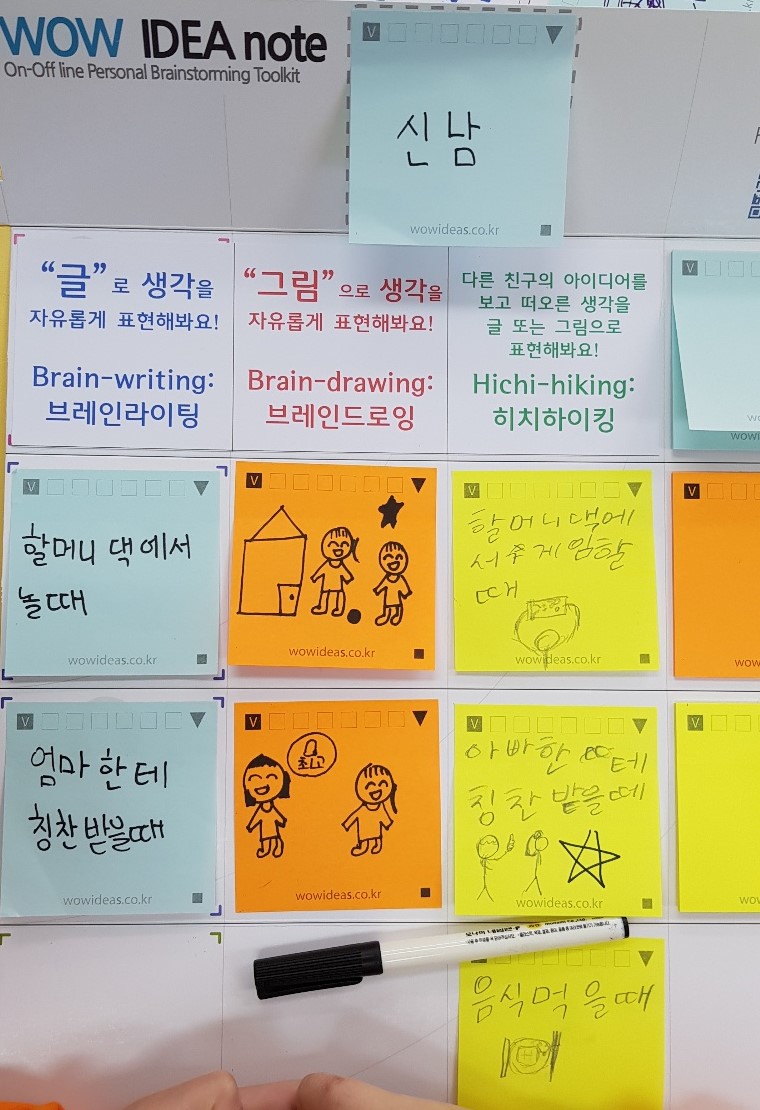 WOW IDEA note
On-Off line Personal Brainstorming Toolkit
V
신남
wowideas.co.kr
“글”로 생각을
자유롭게 표현해봐요!
Brain-writing:
브레인라이팅
“그림”으로 생각을
자유롭게 표현해봐요!
Brain-drawing:
브레인드로잉
다른 친구의 아이디어를
보고 떠오른 생각을
글 또는 그림으로
표현해봐요!
Hichi-hiking:
히치하이킹
V
V
할머니 댁에서
놀때
wowideas.co.kr
V
wowideas.co.kr
V
할머니댁에
서 쥬게임할
때
wowideas.co.kr
V
wow
V
엄마한테
칭찬받을때
wowideas.co.kr
V
최고
wowideas.co.kr
V
아빠한테
칭찬 받을떼
wowideas.co.kr
V
음식먹을때